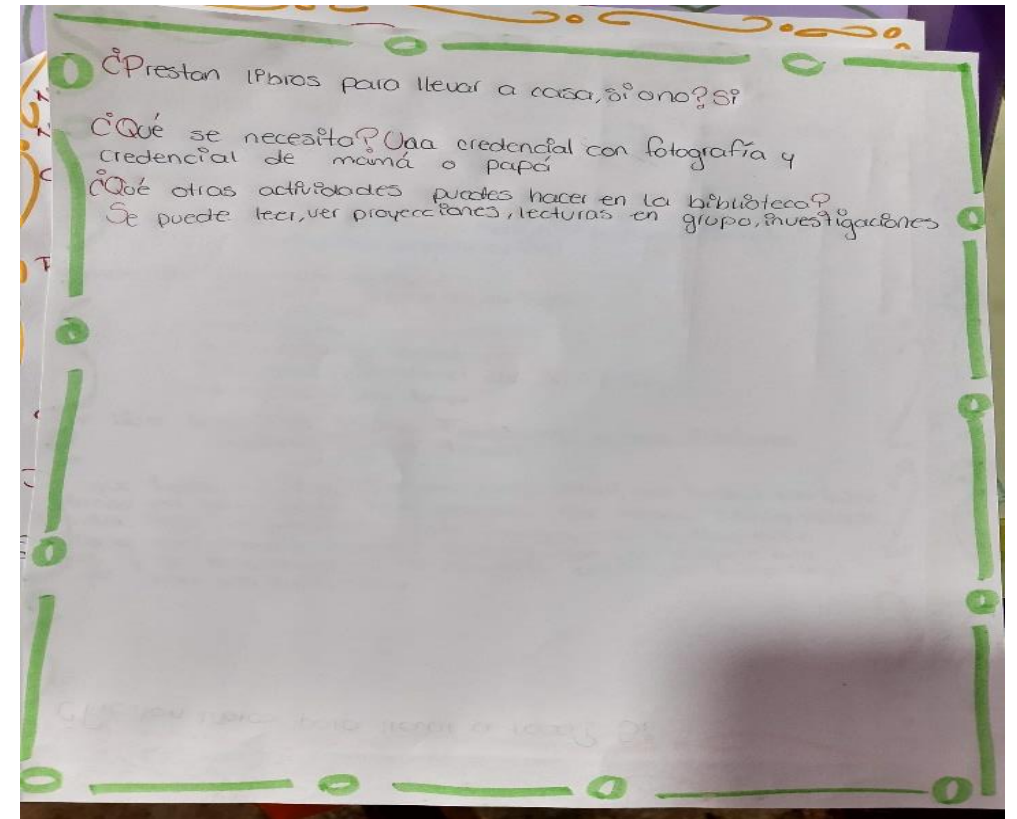 ¿Prestan libros para llevar a casa, si o no? Si
¿Qué se necesita? Una credencial con fotografía y
credencial de mamá o papá
¿Qué otras actividades puedes hacer en la biblioteca?
Se puede leer, ver proyecciones, lecturas en grupo, investigaciones